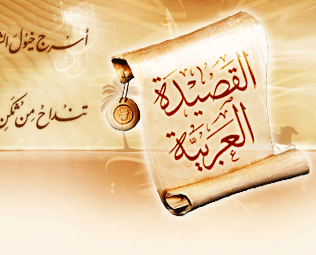 أسرج خيول
تنداح من
القصيدة
العربية